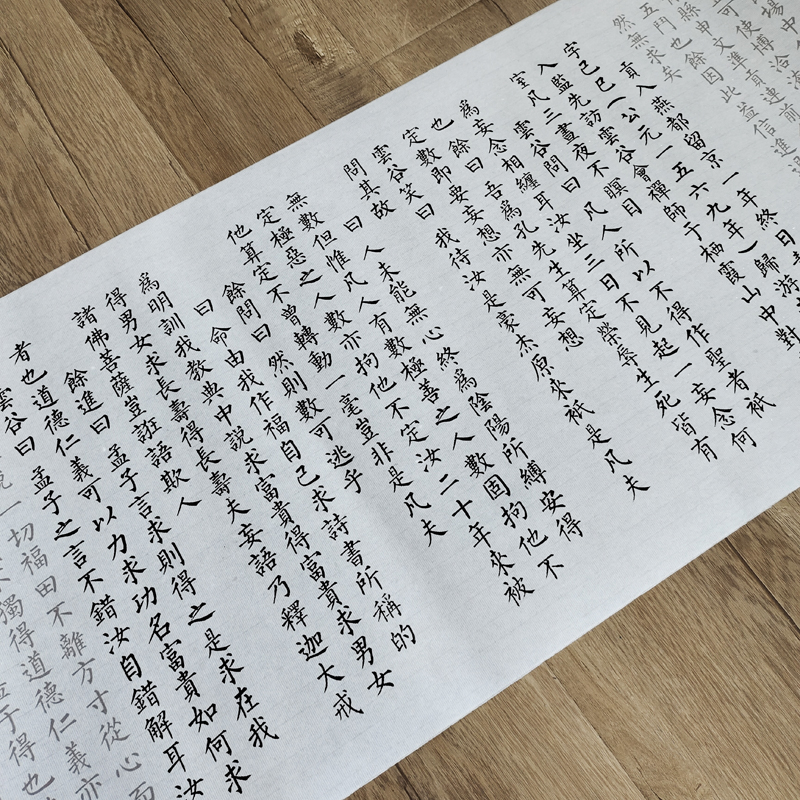 場中
可使博洽
縣申文準貢連前
五門也餘因此益信進
然無求矣
貢入燕都留京一年終日
字己巳(公元一五六九年)歸游
入監先訪雲谷會禪師于栖霞山中對
室凡三晝夜不瞑目
雲谷問曰凡人所以不得作聖者衹
為妄念相纏耳汝坐三日不見起一妄念何
也餘曰吾為孔先生算定榮辱生死皆有
定數即要妄想亦無可妄想
雲谷笑曰我待汝是豪杰原來衹是凡夫
問其故曰人未能無心終為陰陽所縛安得
無數但惟凡人有數極善之人數固拘他不
定極惡之人數亦拘他不定汝二十年來被
他算定不曾轉動一毫豈非是凡夫
餘問曰然則數可逃乎
曰命由我作福自己求詩書所稱的
為明訓我教典中說求富貴得富貴求男女
得男女求長壽得長壽夫妄語乃釋迦大戒
諸佛菩薩豈誑語欺人
餘進曰孟子言求則得之是求在我
者也道德仁義可以力求功名富貴如何求
雲谷曰孟子之言不錯汝自錯解耳汝
說一切福田不離方寸從心而
獨得道德仁義亦
得也